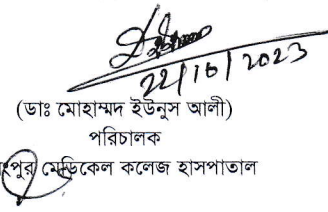 22/10/2023
(ডাঃ মোহাম্মদ ইউনুস আলী)
পরিচালক
রংপুর মেডিকেল কলেজ হাসপাতাল